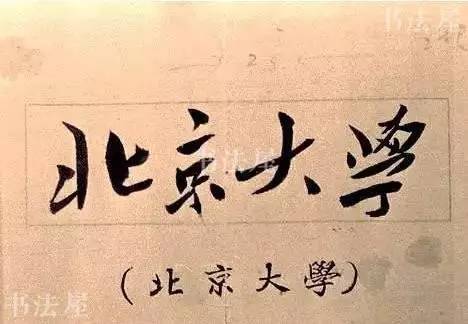 书法屋
北京大學
书法屋
(北京大學)
书法屋